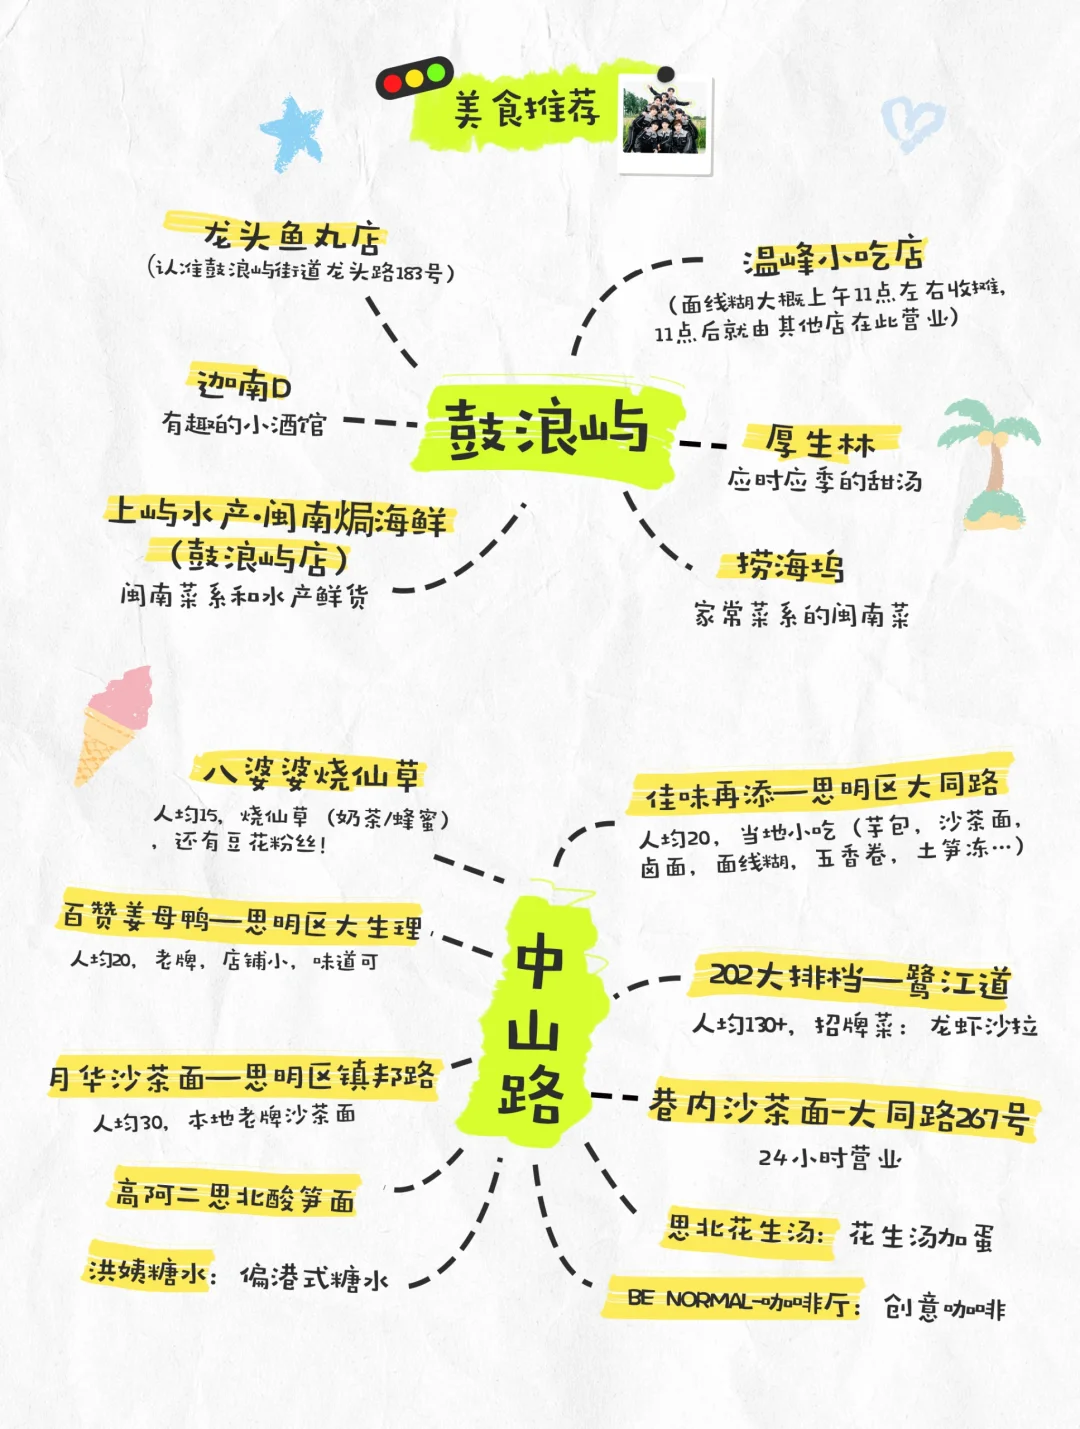 美食推荐
龙头鱼丸店
（认准鼓浪屿街道龙头路183号）
温峰小吃店
（面线糊大概上午11点左右收摊，
11点后就由其他店在此营业）
迦南D
有趣的小酒馆
鼓浪屿
厚生林
应时应季的甜汤
上屿水产·闽南焗海鲜
（鼓浪屿店）
闽南菜系和水产鲜货
捞海坞
家常菜系的闽南菜
八婆婆烧仙草
人均15，烧仙草（奶茶/蜂蜜）
，还有豆花粉丝！
佳味再添—思明区大同路
人均20，当地小吃（芋包，沙茶面，
卤面，面线糊，五香卷，土笋冻…）
百赞姜母鸭—思明区大生理
人均20，老牌，店铺小，味道可
中山路
202大排档—鹭江道
人均130+，招牌菜：龙虾沙拉
月华沙茶面—思明区镇邦路
人均30，本地老牌沙茶面
巷内沙茶面-大同路267号
24小时营业
高阿二思北酸笋面
思北花生汤：花生汤加蛋
洪姨糖水：偏港式糖水
BE NORMAL-咖啡厅：创意咖啡